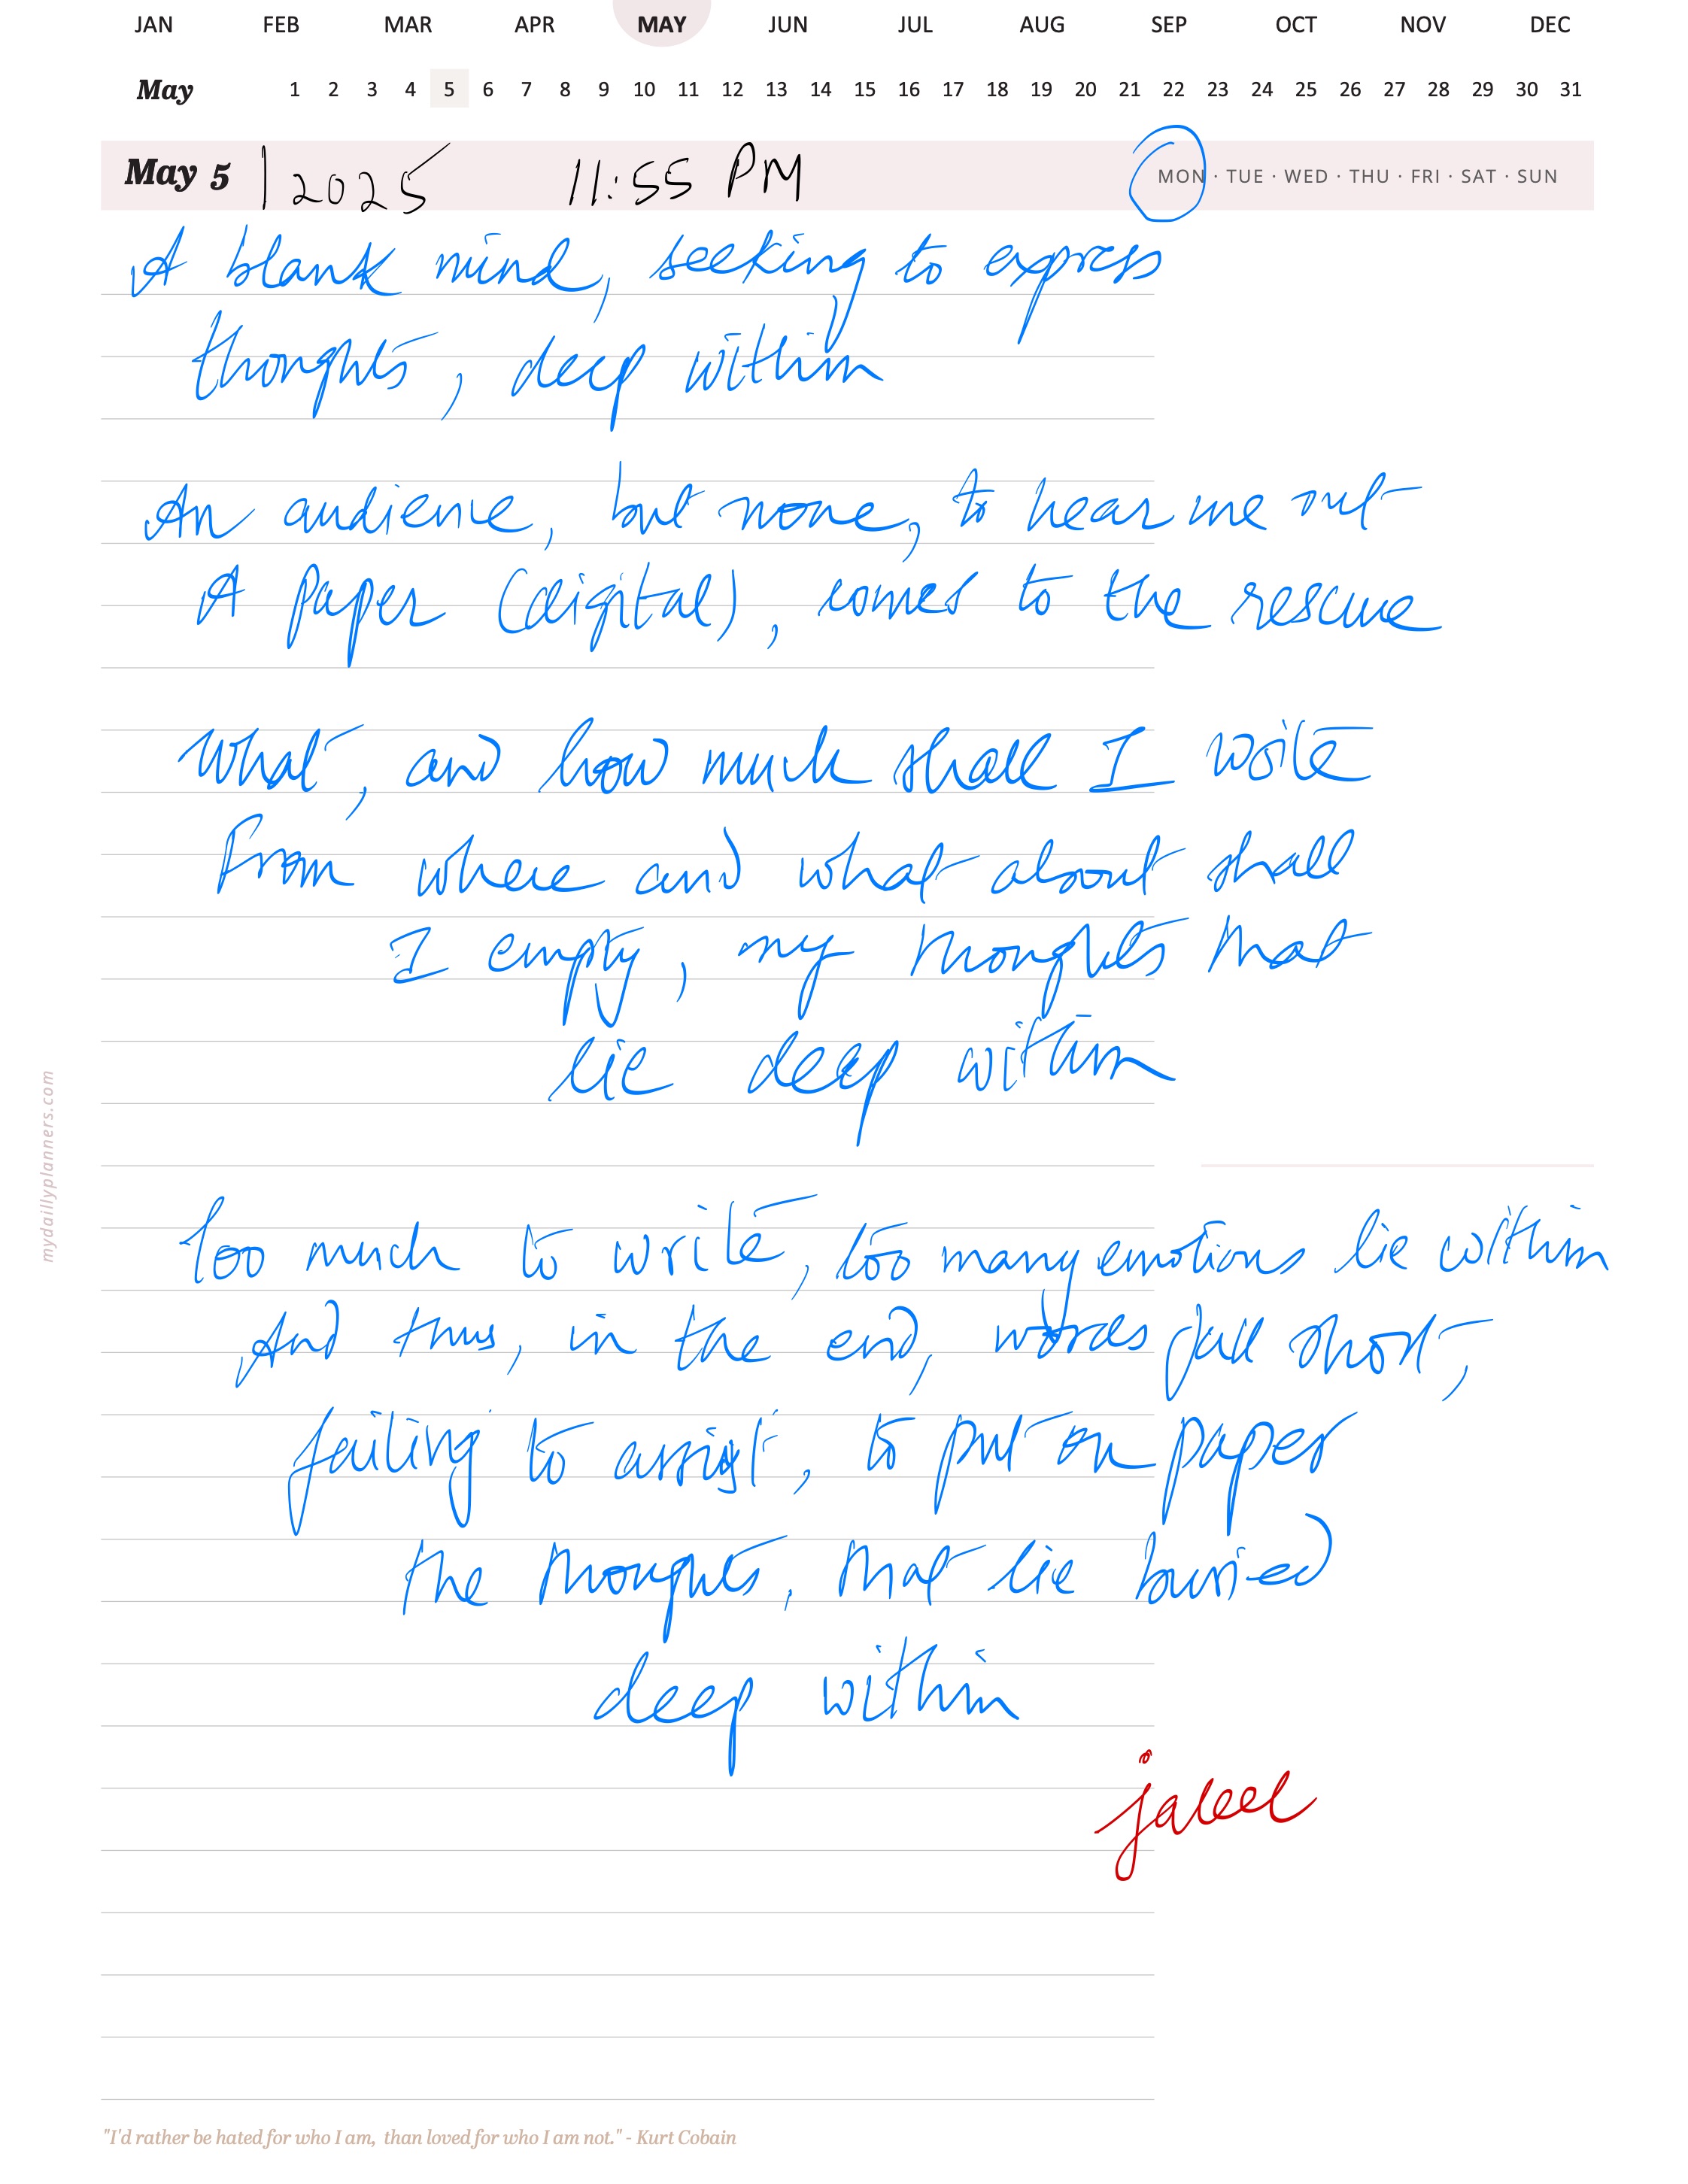 JAN FEB MAR APR MAY JUN JUL AUG SEP OCT NOV DEC
May 1 2 3 4 5 6 7 8 9 10 11 12 13 14 15 16 17 18 19 20 21 22 23 24 25 26 27 28 29 30 31
May 5 | 2025 11:55 PM MON · TUE · WED · THU · FRI · SAT · SUN
A blank mind, seeking to express
thoughts, deep within
An audience, but none, to hear me out
A paper (digital), comes to the rescue
What, and how much shall I write
From where and what about shall
I empty, my thoughts that
lie deep within
Too much to write, too many emotions lie within
And thus, in the end, words fall short,
failing to assist, to put on paper
the thoughts, that lie buried
deep within
jaleel
mydaillyplanners.com
"I'd rather be hated for who I am, than loved for who I am not." - Kurt Cobain